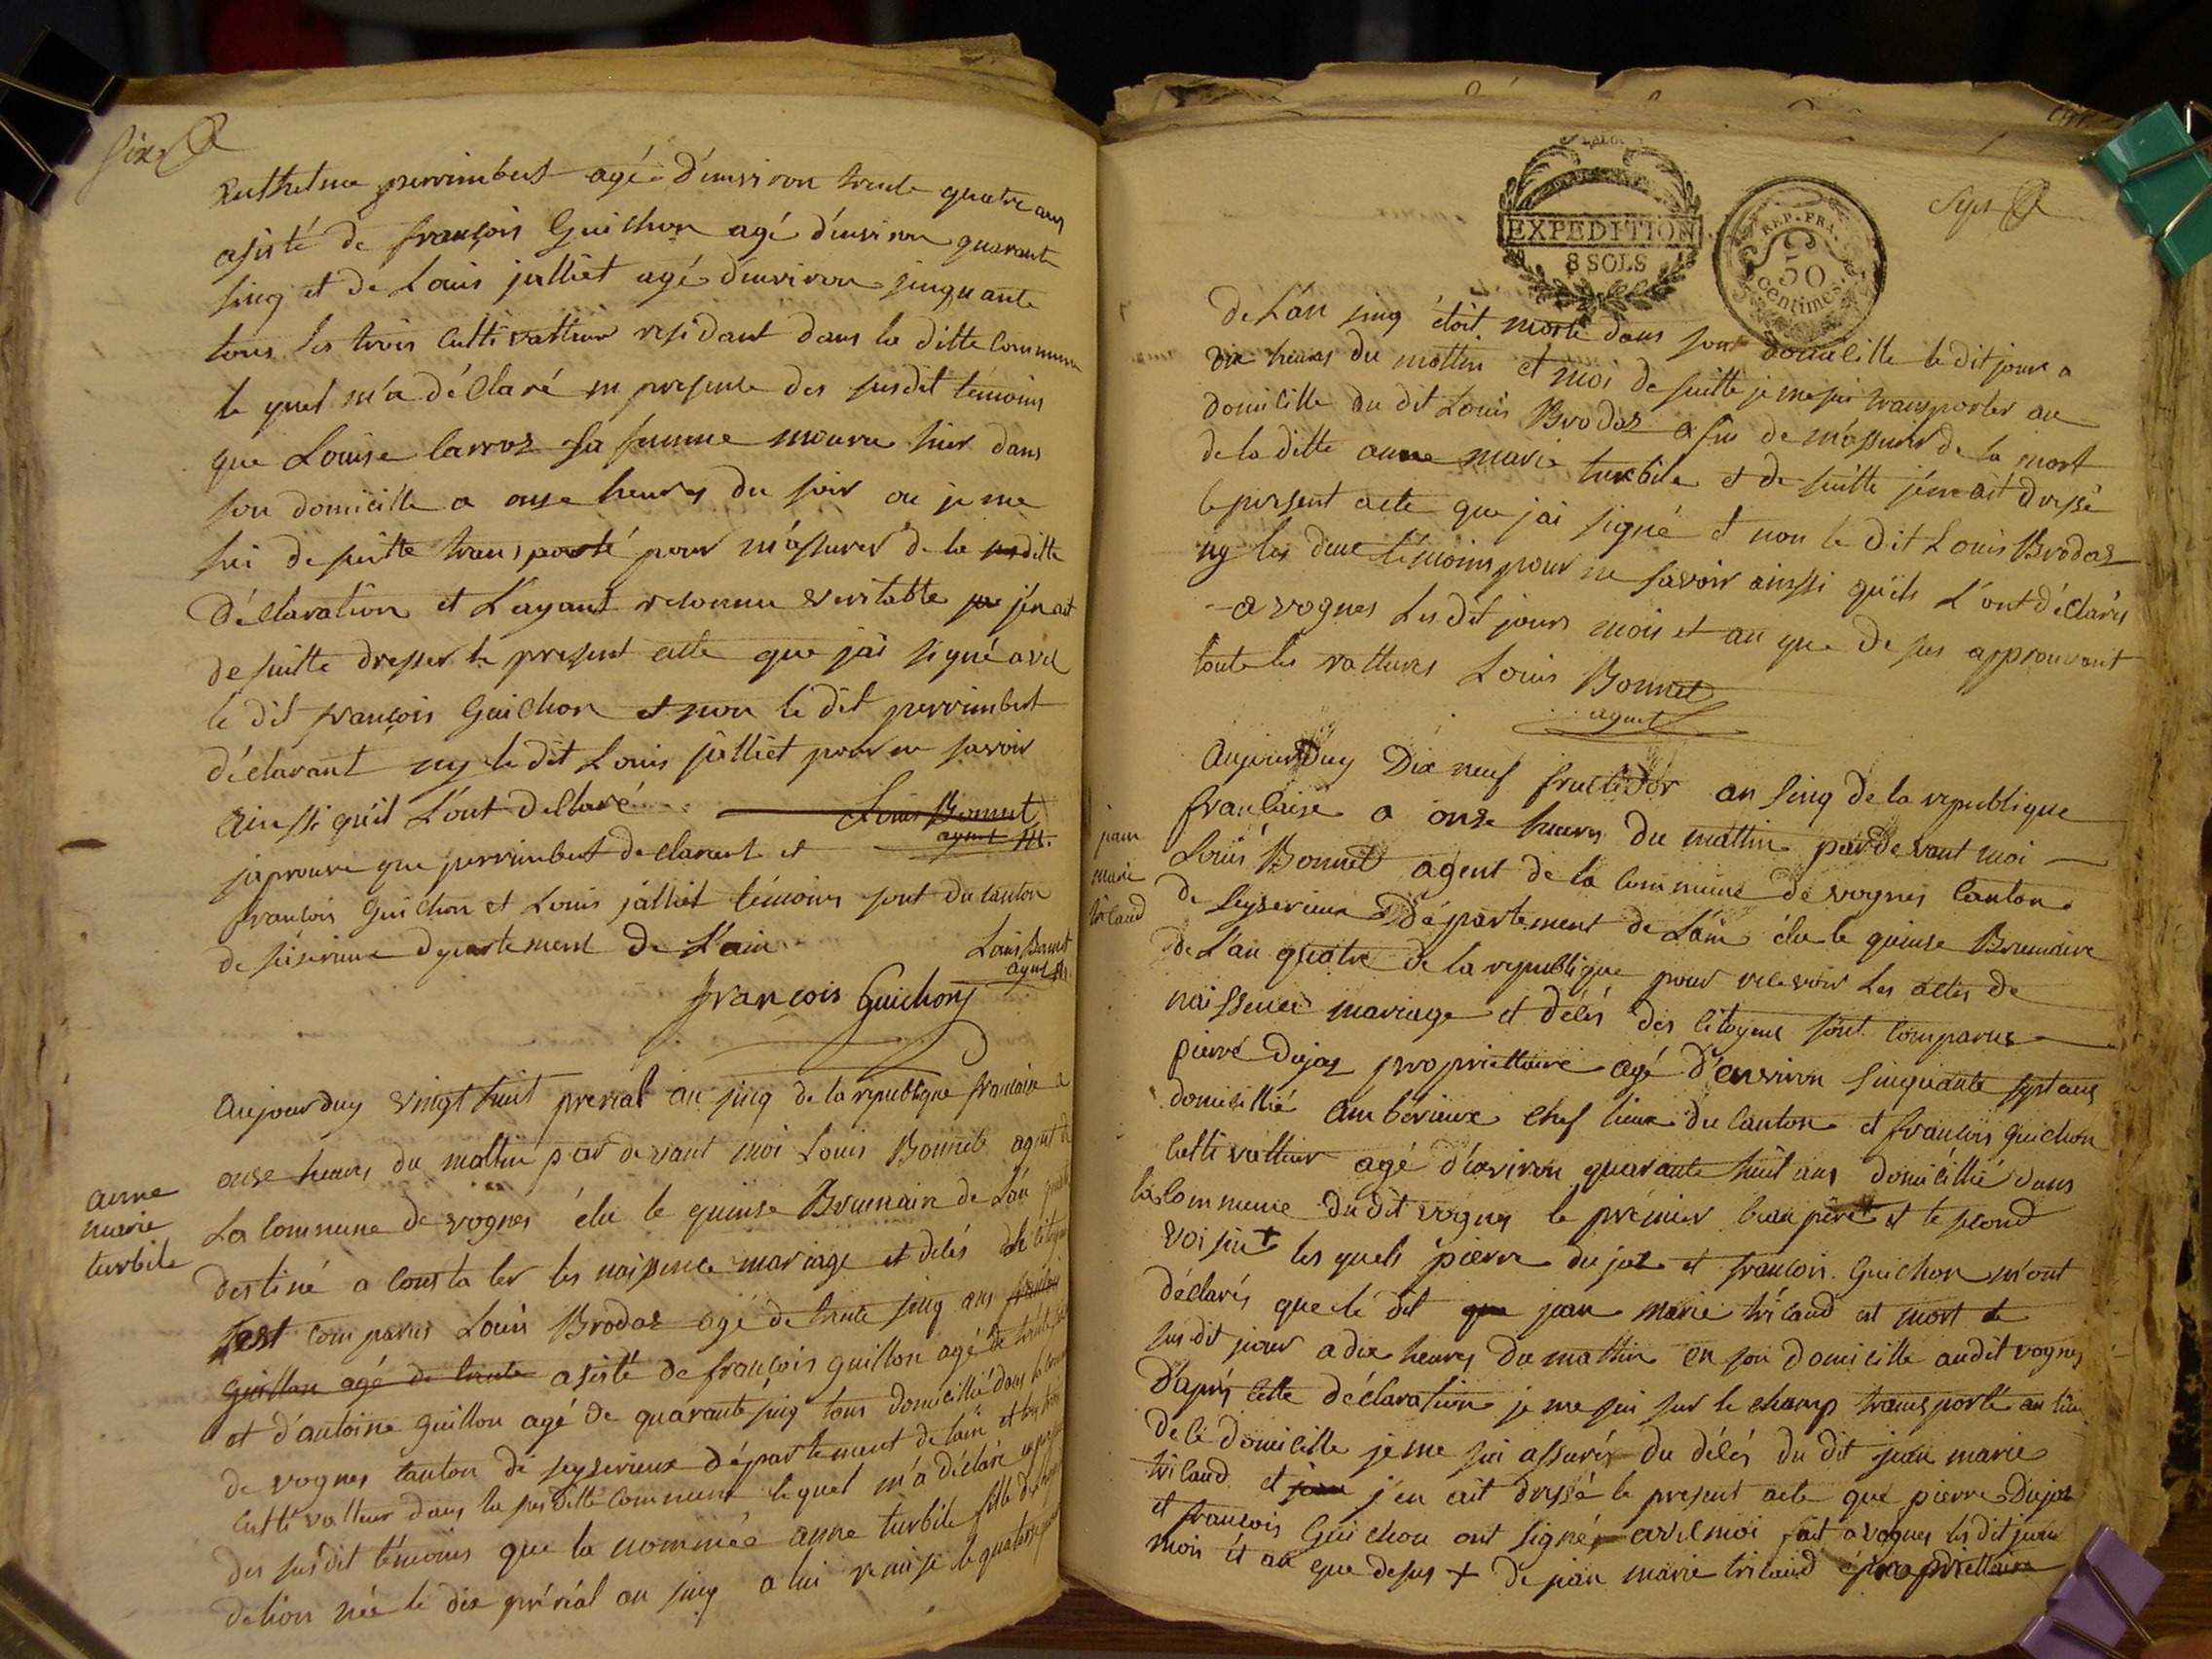 six
Enthelme perrimbert agé d'environ trente quatre ans
assisté de françois Guichon agé d'environ quarante
sinq et de Louis jalliet agé d'environ sinquante
tous les trois cultivatteur residant dans la ditte commune
le quel m'a déclaré en presence des susdit témoins
que Louise Carroz sa femme mouru hier dans
son domicille a onze heures du soir ou je me
sui de suitte transporté pour m'assurer de la ditte
Déclaration et L'ayant reconnu veritable j'en ait
de suitte dresser le present acte que jai signé avec
le dit françois Guichon et non le dit perrimbert
déclarant ny le dit Louis jalliet pour ne savoir
ainssi quil L'ont declaré Louis Bonnet
agent
japrouve que perrimbert declarent et
francois Guichon et Louis jalliet témoins sont du canton
de seiserieux departement de L'ain Louis Bonnet
agent
françois Guichon
Aujourduy vingt huit prerial an sinq de la republique francaise a
onze heures du mattin par devant moi Louis Bonnet agent de
anne
marie
turbile
La Commune de vognes élu le quinse Brumaire de L'an quatre
destiné a consta ter les naissence mariage et délés de citoyens
sest comparus Louis Brodaz agé de trente sinq ans
Guillon agé de trente asisté de françois guillon agé de trente
et d'antoine guillon agé de quarante sinq tous domicillié dans la commune
de vognes canton de seyserieux département de lain et tous trois
cultivatteur dans la susditte commune lequel m'a déclaré en presence
des susdit témoins que la nommée anne turbile fille
delion née le dix prérial an sinq a lui remise le quatorze
EXPEDITION
8 SOLS
REP. FRA.
50
Centimes
Sept
de L'an sinq étoit morte dans son domicille le dit jour a
dix heures du mattin et moi de suitte je me sui transporter au
domicille du dit Louis Brodaz a fin de m'assurer de la mort
de la ditte anne marie turbile et de suitte j'en ait dressé
le present acte que jai signé et non le dit Louis Brodaz
ny les deux témoins pour ne savoir ainssi qu'ils L'ont déclarés
a vognes Les dit jours mois et an que de sus approuvant
toute les rattures Louis Bonnet
agent
Aujourduy Dix neuf fructidor an sinq de la republique
francaise a onze heures du mattin par devant moi
jean
marie
tricaud
Louis Bonnet agent de la commune de vognes canton
de seyserieux Département de L'ain élu le quinse Brumaire
de L'an quatre de la republique pour recevoir Les actes de
naissence mariage et délés des citoyens sont comparus
pierre Dujaz propriettaire agé d'environ sinquante sept ans
domicillié amberieux chef lieux du canton et françois guichon
cultivatteur agé d'environ quarante huit ans domicillié dans
la commune du dit vognes le prémier beau père et le second
voisin + les quels pierre dujaz et françois Guichon m'ont
déclarés que le dit que jean marie tricaud est mort le
sus dit jour a dix heures du mattin en son domicille audit vognes
D'après cette déclaration je me sui sur le champ transporté au lieu
de le domicille je me sui assurés du délés du dit jean marie
tricaud et j'en ait dressé le present acte que pierre Dujaz
et françois Guichon ont signé avec moi fait a vognes les dit jour
mois et an que desus + de jean marie tricaud propriettaire